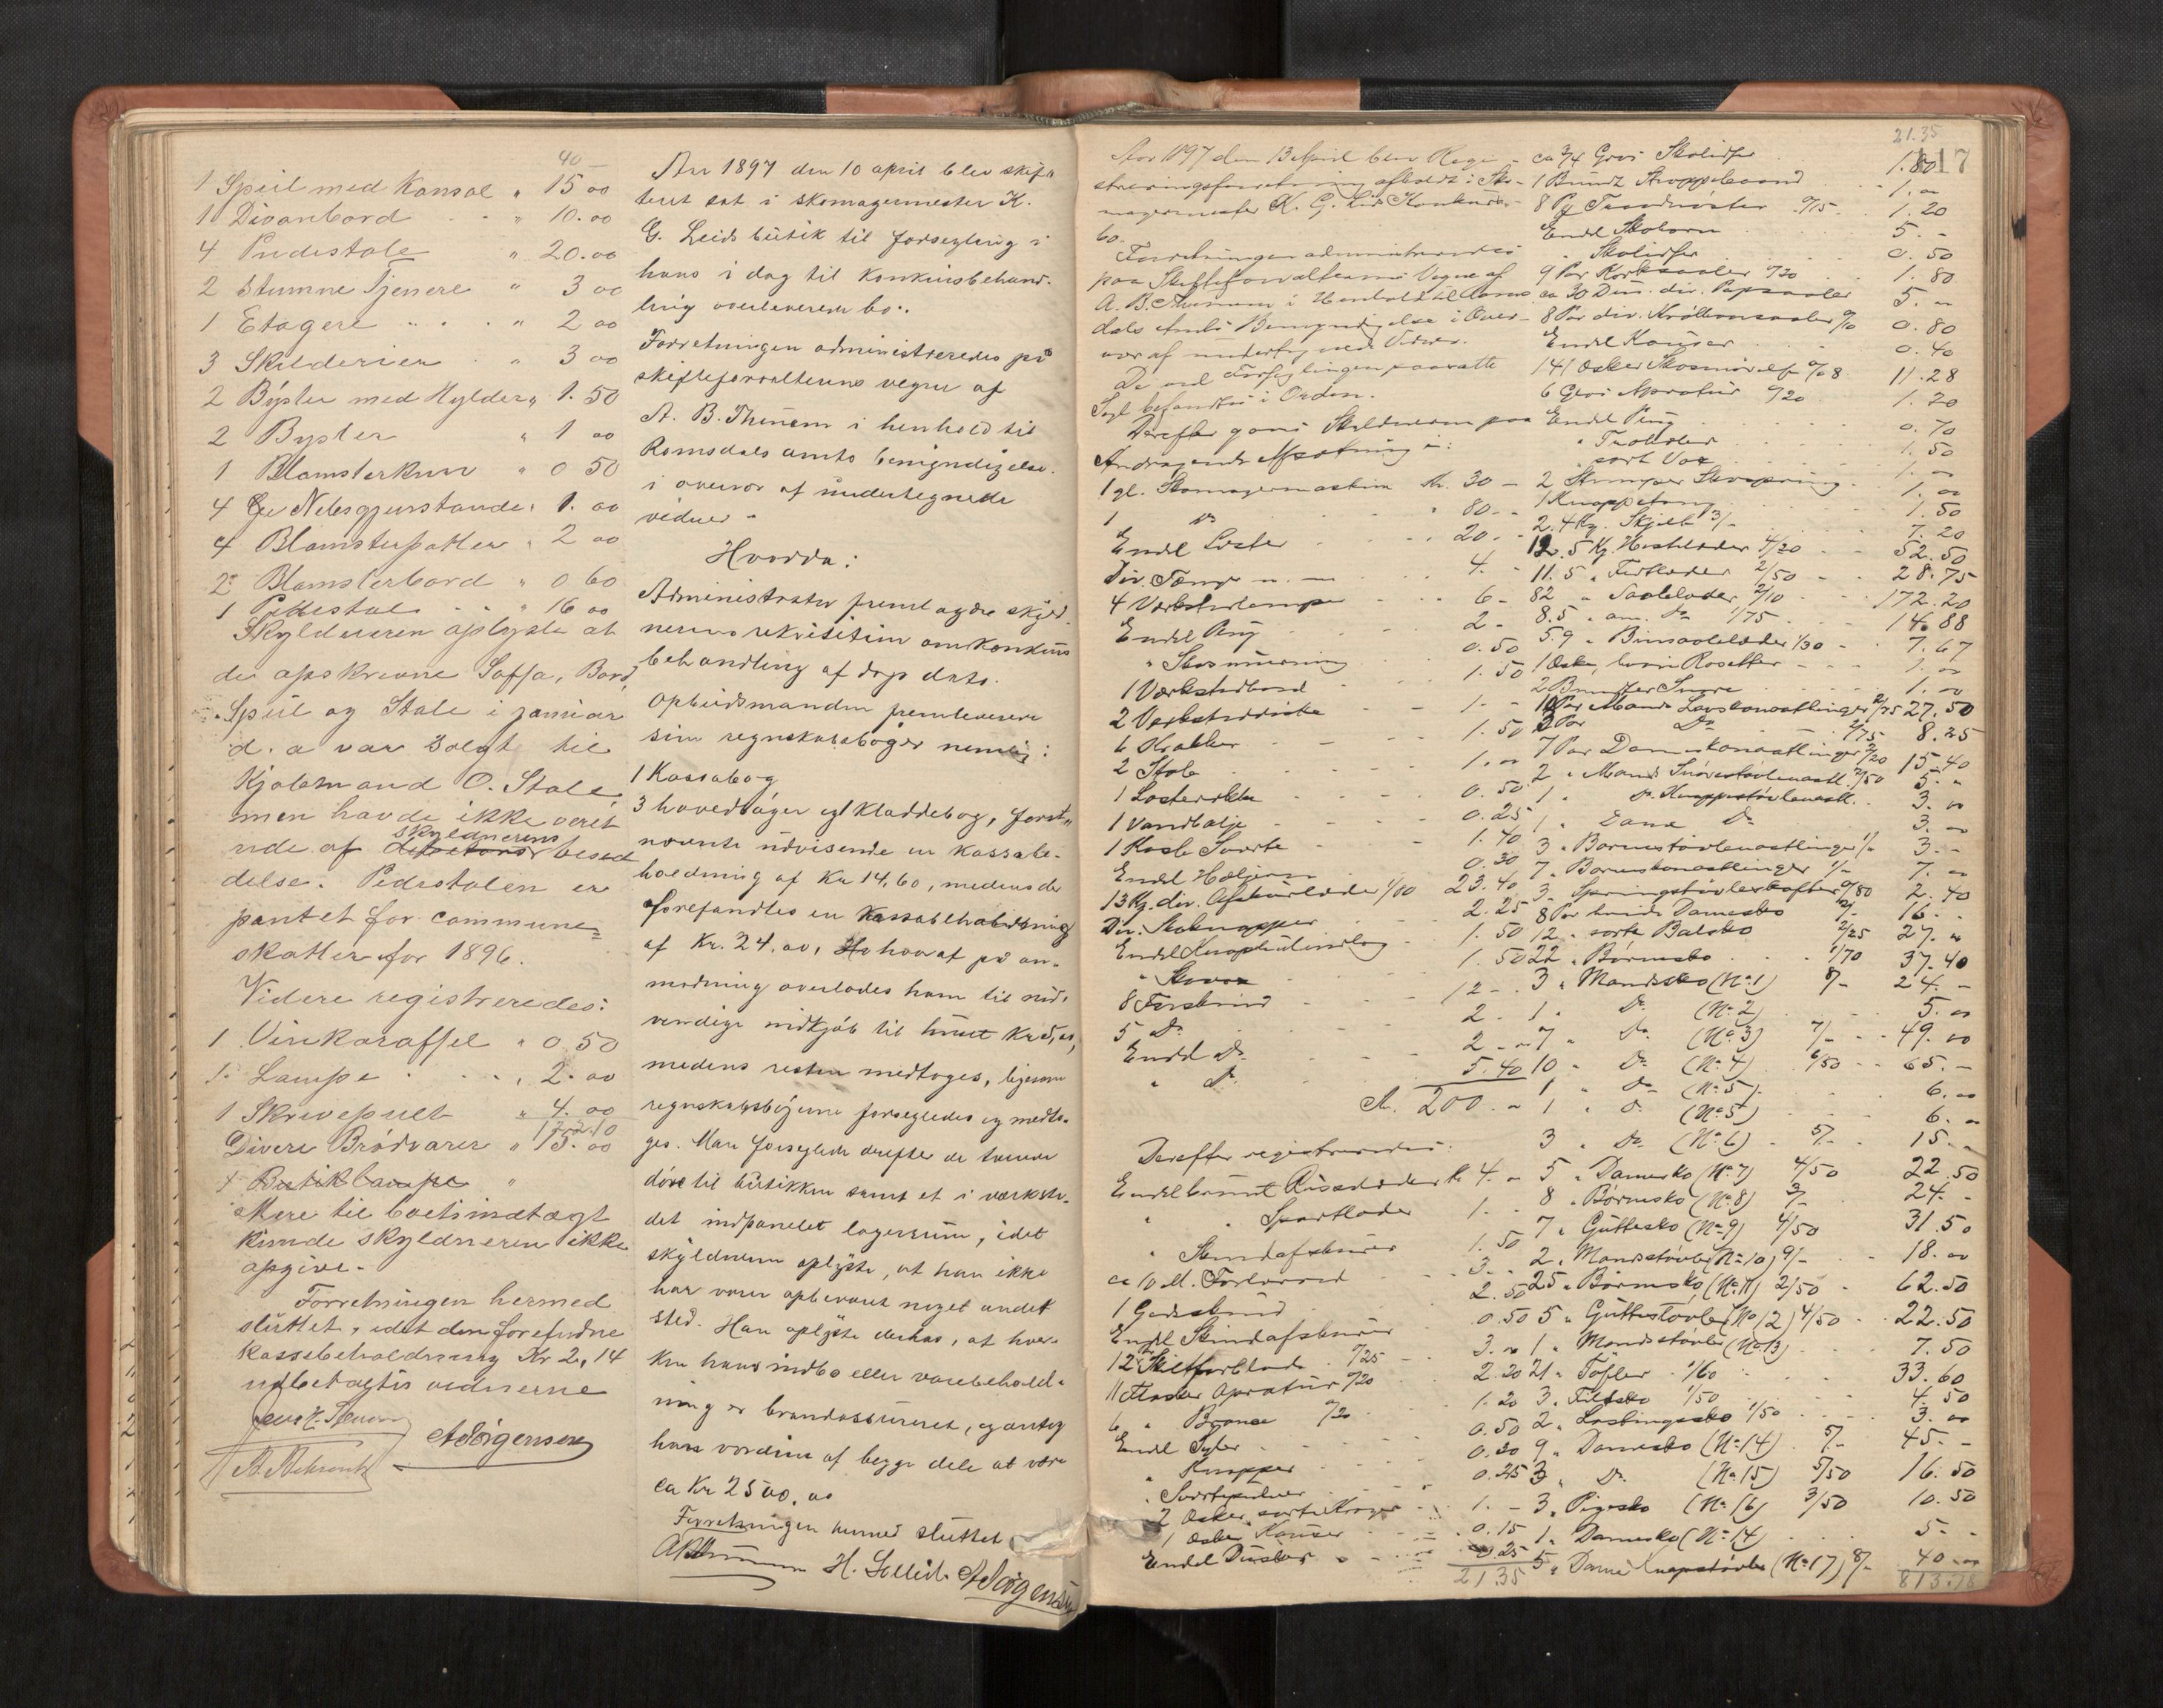 40 –
1 Speil med Konsol " 15 00
1 Divanbord " 10.00
4 Pudestole " 20.00
2 Stumne Tjenere " 3 00
1 Etagere " 2 00
3 Skilderier " 3 00
2 Byster med Hylder " 1.50
2 Byster " 1 00
1 Blomsterkurv " 0 50
4 Nibsgjenstande " 1.00
4 Blomsterpotter " 2 00
2 Blomsterbord " 0 60
1 Pidestal " 16 00
Skyldneren oplyste at
de opskrevne Soffa, Bord,
Speil og Stole i januar
d. a var solgt til
Kjøbmand O. Stole,
men havde ikke veret
ude af skyldnerens besid
delse. Pedestalen er
pantet for commune=
skatter for 1896.
Videre registreredes:
1 Vinkaraffel " 0.50
1 Lampe " 2.00
1 Skrivepult " 4.00
122.10
Divere Brødvarer " 15.00
1 Butiklampe "
Mere til boets indtægt
kunde skyldneren ikke
opgive.
Forretningen hermed
sluttet, idet den forefundne
Kassebeholdning Kr 2,14
udbetaltes vidnerne
A Sørgensen
Aar 1897 den 10 april blev skifte
teret sat i skomagermester K.
G. Leids butik til forsegling i
hans i dag til konkursbehand-
ling overleverede bo.
Forretningen administreredes på
skifteforvalterens vegne af
A. B. Thinem i henhold til
Romsdals amts bemyndigelse
i overvær af undertegnede
vidner –
Hvorda:
Administrator fremlagde skyld-
nerens rekvisition om konkurs
behandling af dags dato.
Opbudsmanden fremleverede
sine regnskabsbøger nemlig:
1 Kassabog
3 hovedbøger og 1 Kladdebog, først-
nevnte udvisende en kassabe-
holdning af Kr 14,60, medens der
forefandtes en Kassabeholdning
af Kr. 24.00, Hvoraf på an-
modning overlodes ham til nød-
vendige indkjøb til huset Kr 5,00,
medens resten medtoges, ligesom
regnskabsbøgerne forsegledes og medto-
ges. Man forseglede derefter de tvende
døre til butikken samt et i værkste-
det indpanelet lagerrum, idet
skyldneren oplyste, at han ikke
har varer opbevaret noget andet
sted. Han oplyste derhos, at hver-
ken hans indbo eller varebehold-
ning er brandassureret, og antog
hans værdien af begge dele at være
ca Kr 2500,00
Forretningen hermed sluttet
A B Thinem H. Solleid. A Sørgensen
Aar 1897 den 13 April blev Regi-
streringsforretning afholdt i Sko-
magermester K. G. Leids Konkurs-
bo.
Forretningen administreredes
paa Skifteforvalterens Vegne af
A. B. Thinem i Henhold til Roms-
dals Amts Bemyndigelse i Over-
vær af undertegnede Vidner.
De ved Forseglingen paasatte
Segl befandtes i Orden.
Derefter gav Skyldneren paa
Andragende Opsætning i:
1 gl. Skomagermaskine Kr. 30 –
1 Do " 80 –
Endel Læster 20.
Div. Tænger 4.
4 Værkstedlamper 6 –
Endel Pløg 2 –
" Skosmørning 0.50
1 Værkstedbord 1.50
2 Værksteddiske 1. –
6 Krakker 1.50
2 Stole 1. 00
1 Læsterække 0.50
1 Vandbalje 0.25
1 Kasse Sværte 1.40
Endel 0.30
13 Kg. div. Afskurlæder 1/80 23.40
Div. Skoknapper 2.25
Endel Knaphulindlæg 1.50
" Skovox 1.50
8 Faarskind 12 –
5 Do 2 –
Endel Do. 2 –
" Do 5.40
Kr. 200 –
Derefter registreredes:
Endel brunt Risslæder Kr 4. –
" " Svartlæder 1. –
" Skindafskurer 1.50
ca 10 M. Forlærred 3. –
1 Gedeskind 2.50
Endel Skindafskurer 0.50
12 Skilfurblade 0/25 3. –
11 Flasker Apretur 0/20 2.20
6 " Bronce 0/20 1.20
Endel Syler 0.50
" Knapper 0.20
" Sværtepulver 0.25
2 Æsker sorte Kroger 1. –
1 Æske Kanser 0.15
Endel Duster 0.25
21.35
21.35
117
ca 3/4 Gros Skolidser 1.80
1 Bundt Stroppebaand 1. 00
8 Pg Traadnøster 0/15 1.20
Endel Skohorn 5. –
" Skolidser 0.50
9 Par Korksaaler 0/20 1.80
ca 30 Dus. div. Papsaaler 5. 00
8 Par div. Krølhaarsaaler 0/10 0.80
Endel Kanser 0.40
141 Æsker Skosmørelse 0/08 11.28
6 Glas Apretur 0/20 1.20
Endel Pløg 0.70
" Traadruller 1.50
" sort Vox 1. 00
2 Stumper Skospring 1. 00
1 Knappetang 1.50
2.4 Kg. Skjelt 3/– 7.20
12.5 Kg. Hestelæder 4/20 52.50
11.5 " Fedtlæder 2/50 28.75
82 " Saalelæder 2/10 172.20
8.5 " am. Do 1/75 14.88
5.9 " Binsaalelæder 1/30 7.67
1 Æske, hvori Rosetter 1. 00
2 Bundter Snore 1. 00
10 Par Mands Lærskonaatlinger 2/75 27.50
3 Par Do 2/75 8.25
7 Par Dameskonaatlinger 2/20 15.40
2 " Mands Snørestøvlenaatl. 2/50 5. –
1 " Do. Knappestøvlenaatl. 3. 00
1 " Dame Do 3. –
3 " Barnestøvlenaatlinger 1/– 3. –
7 " Barneskonaatlinger 1/– 7. 00
3 " Springstøvleskafter 0/80 2.40
8 Par hvide Damesko 2/– 16. –
12 " sorte Balsko 2/25 27. 00
22 " Børnesko 1/70 37.40
3 " Mandssko (No 1) 8/– 24. –
1 " Do (No 2) 5. 00
7 " Do (No 3) 7/– 49. 00
10 " Do (No 4) 6/50 65. –
1 " Do (No 5) 6. 00
1 " Do (No 5) 6. –
3 " Do (No 6) 5/– 15. –
5 " Damesko (No 7) 4/50 22.50
8 " Børnesko (No 8) 3/– 24. –
7 " Guttesko (No 9) 4/50 31.50
2 " Mandsstøvler (No 10) 9/– 18. 00
25 " Børnesko (No 11) 2/50 62.50
5 " Guttestøvler (No 12) 4/50 22.50
1 " Mandsstøvler (No 13) 7.50
21 " Tøfler 1/60 33.60
3 " Filtsko 1/50 4.50
2 " Lastingssko 1/50 3. 00
9 " Damesko (No 14) 5/– 45. –
3 " Do (No 15) 5/50 16.50
3 " Pigesko (No 16) 3/50 10.50
1 " Damesko (No 14) 5. –
5 " Dame Knapstøvler (No 17) 8/– 40. 00
813.78